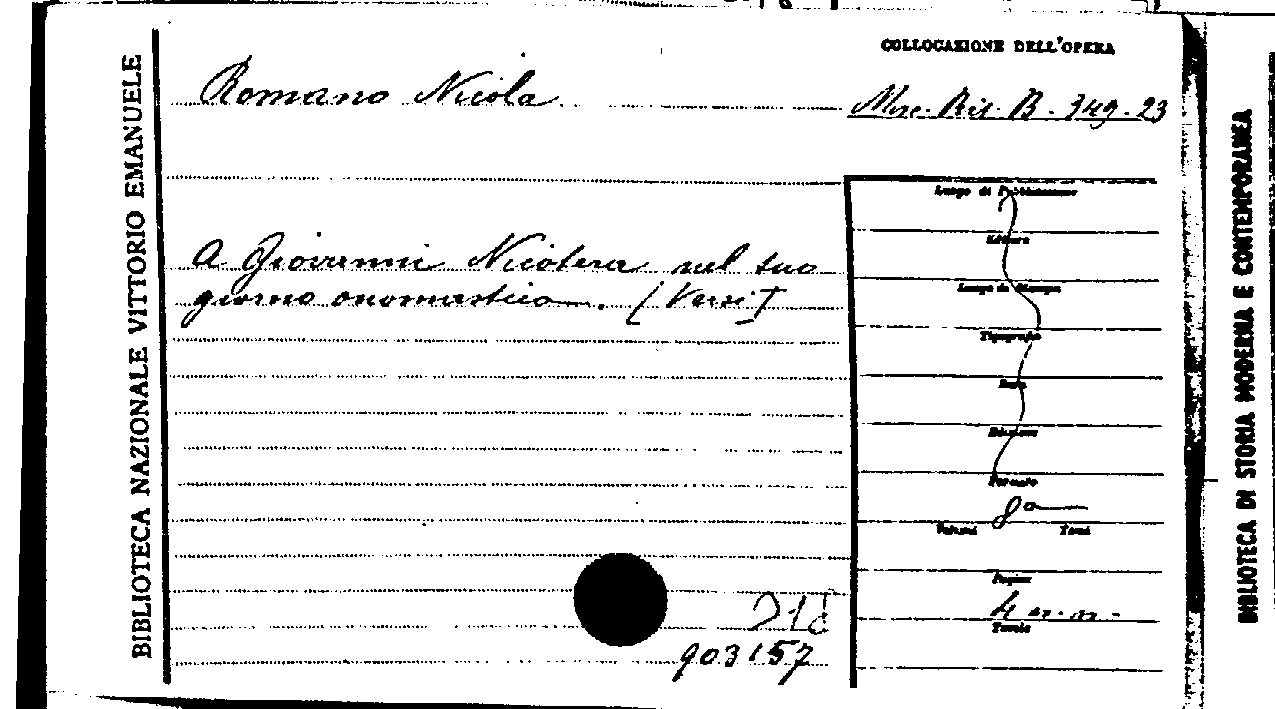 COLLOCAZIONE DELL'OPERA
Romano Nicola
Misc. Ris. B. 349.23
A Giovanni Nicotera nel suo
giorno onomastico. [Versi]
Luogo di Pubblicazione
Editore
Luogo di Stampa
Tipografia
Data
Edizione
Formato
8°
Volumi Tomi
Pagine
4 n.n.
Tavole
903157
BIBLIOTECA NAZIONALE VITTORIO EMANUELE
BIBLIOTECA DI STORIA MODERNA E CONTEMPORANEA